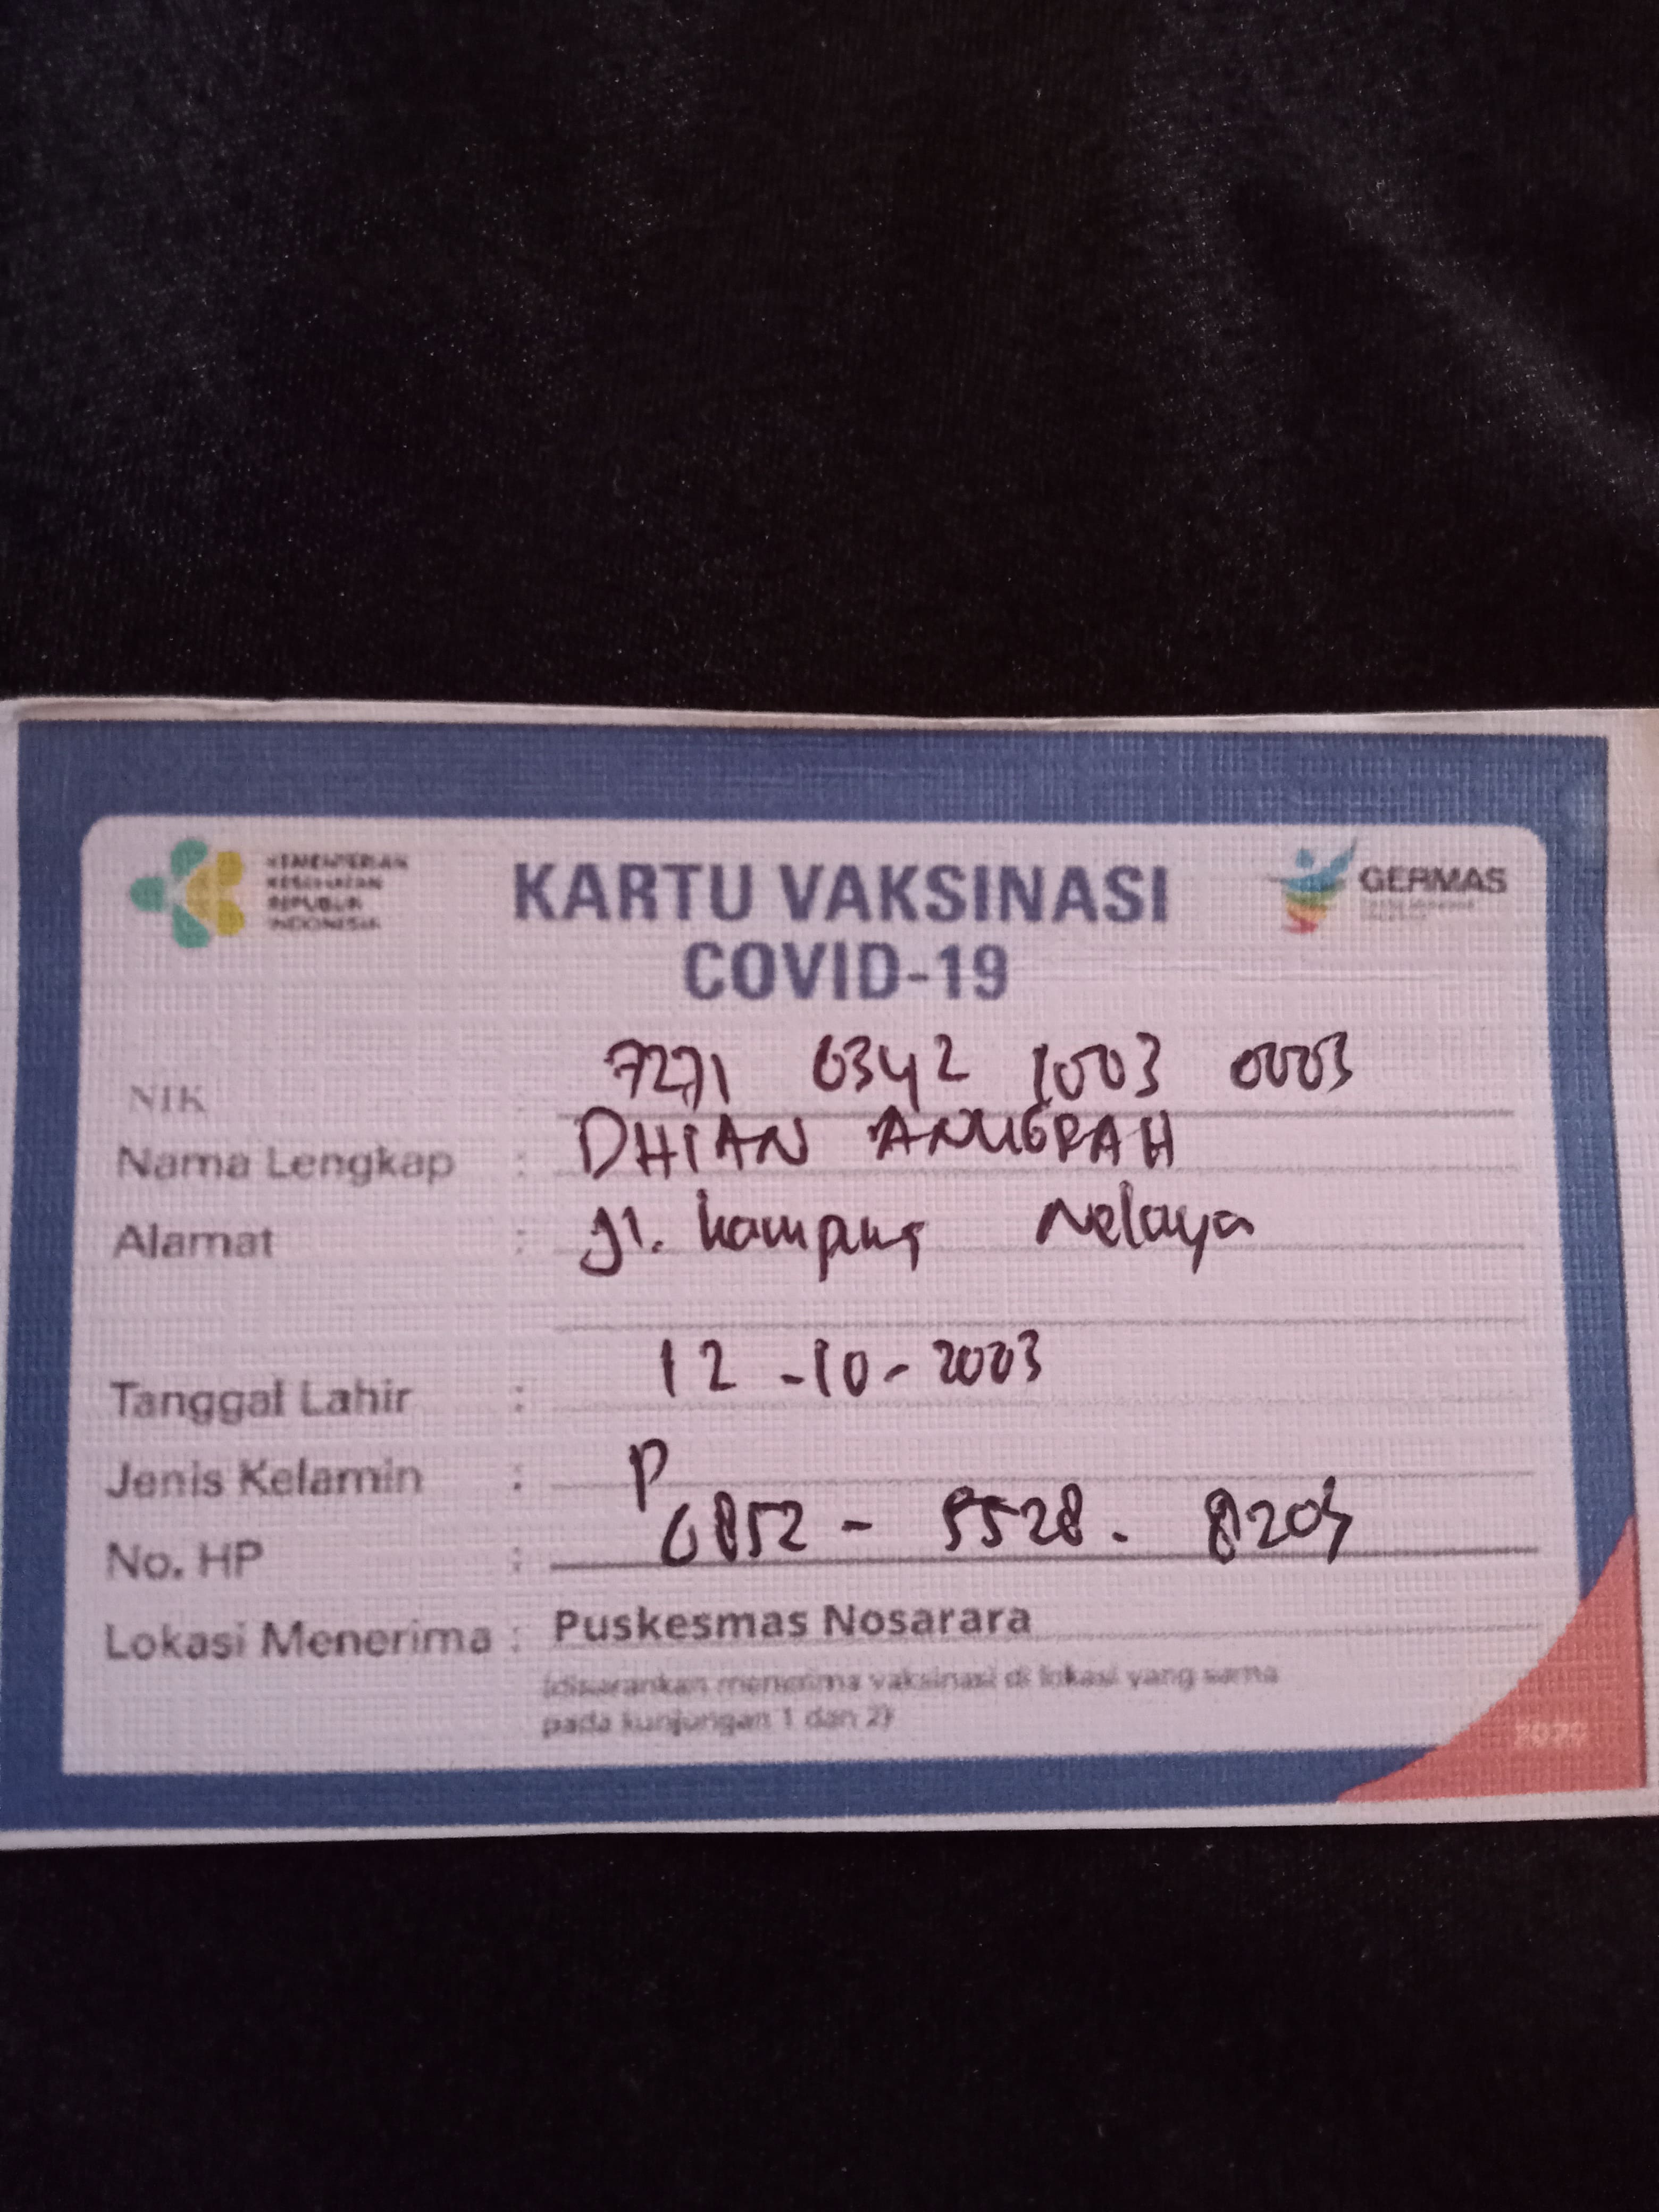 KEMENTERIAN
KESEHATAN
REPUBLIK
INDONESIA
KARTU VAKSINASI
COVID-19
GERMAS
NIK : 7271 0342 1003 0003
Nama Lengkap : DHIAN ANUGRAH
Alamat : Jl. kampung Nelaya
Tanggal Lahir : 12 -10- 2003
Jenis Kelamin : P
No. HP : 0852 - 5528. 8204
Lokasi Menerima : Puskesmas Nosarara
(disarankan menerima vaksinasi di lokasi yang sama
pada kunjungan 1 dan 2)
2020